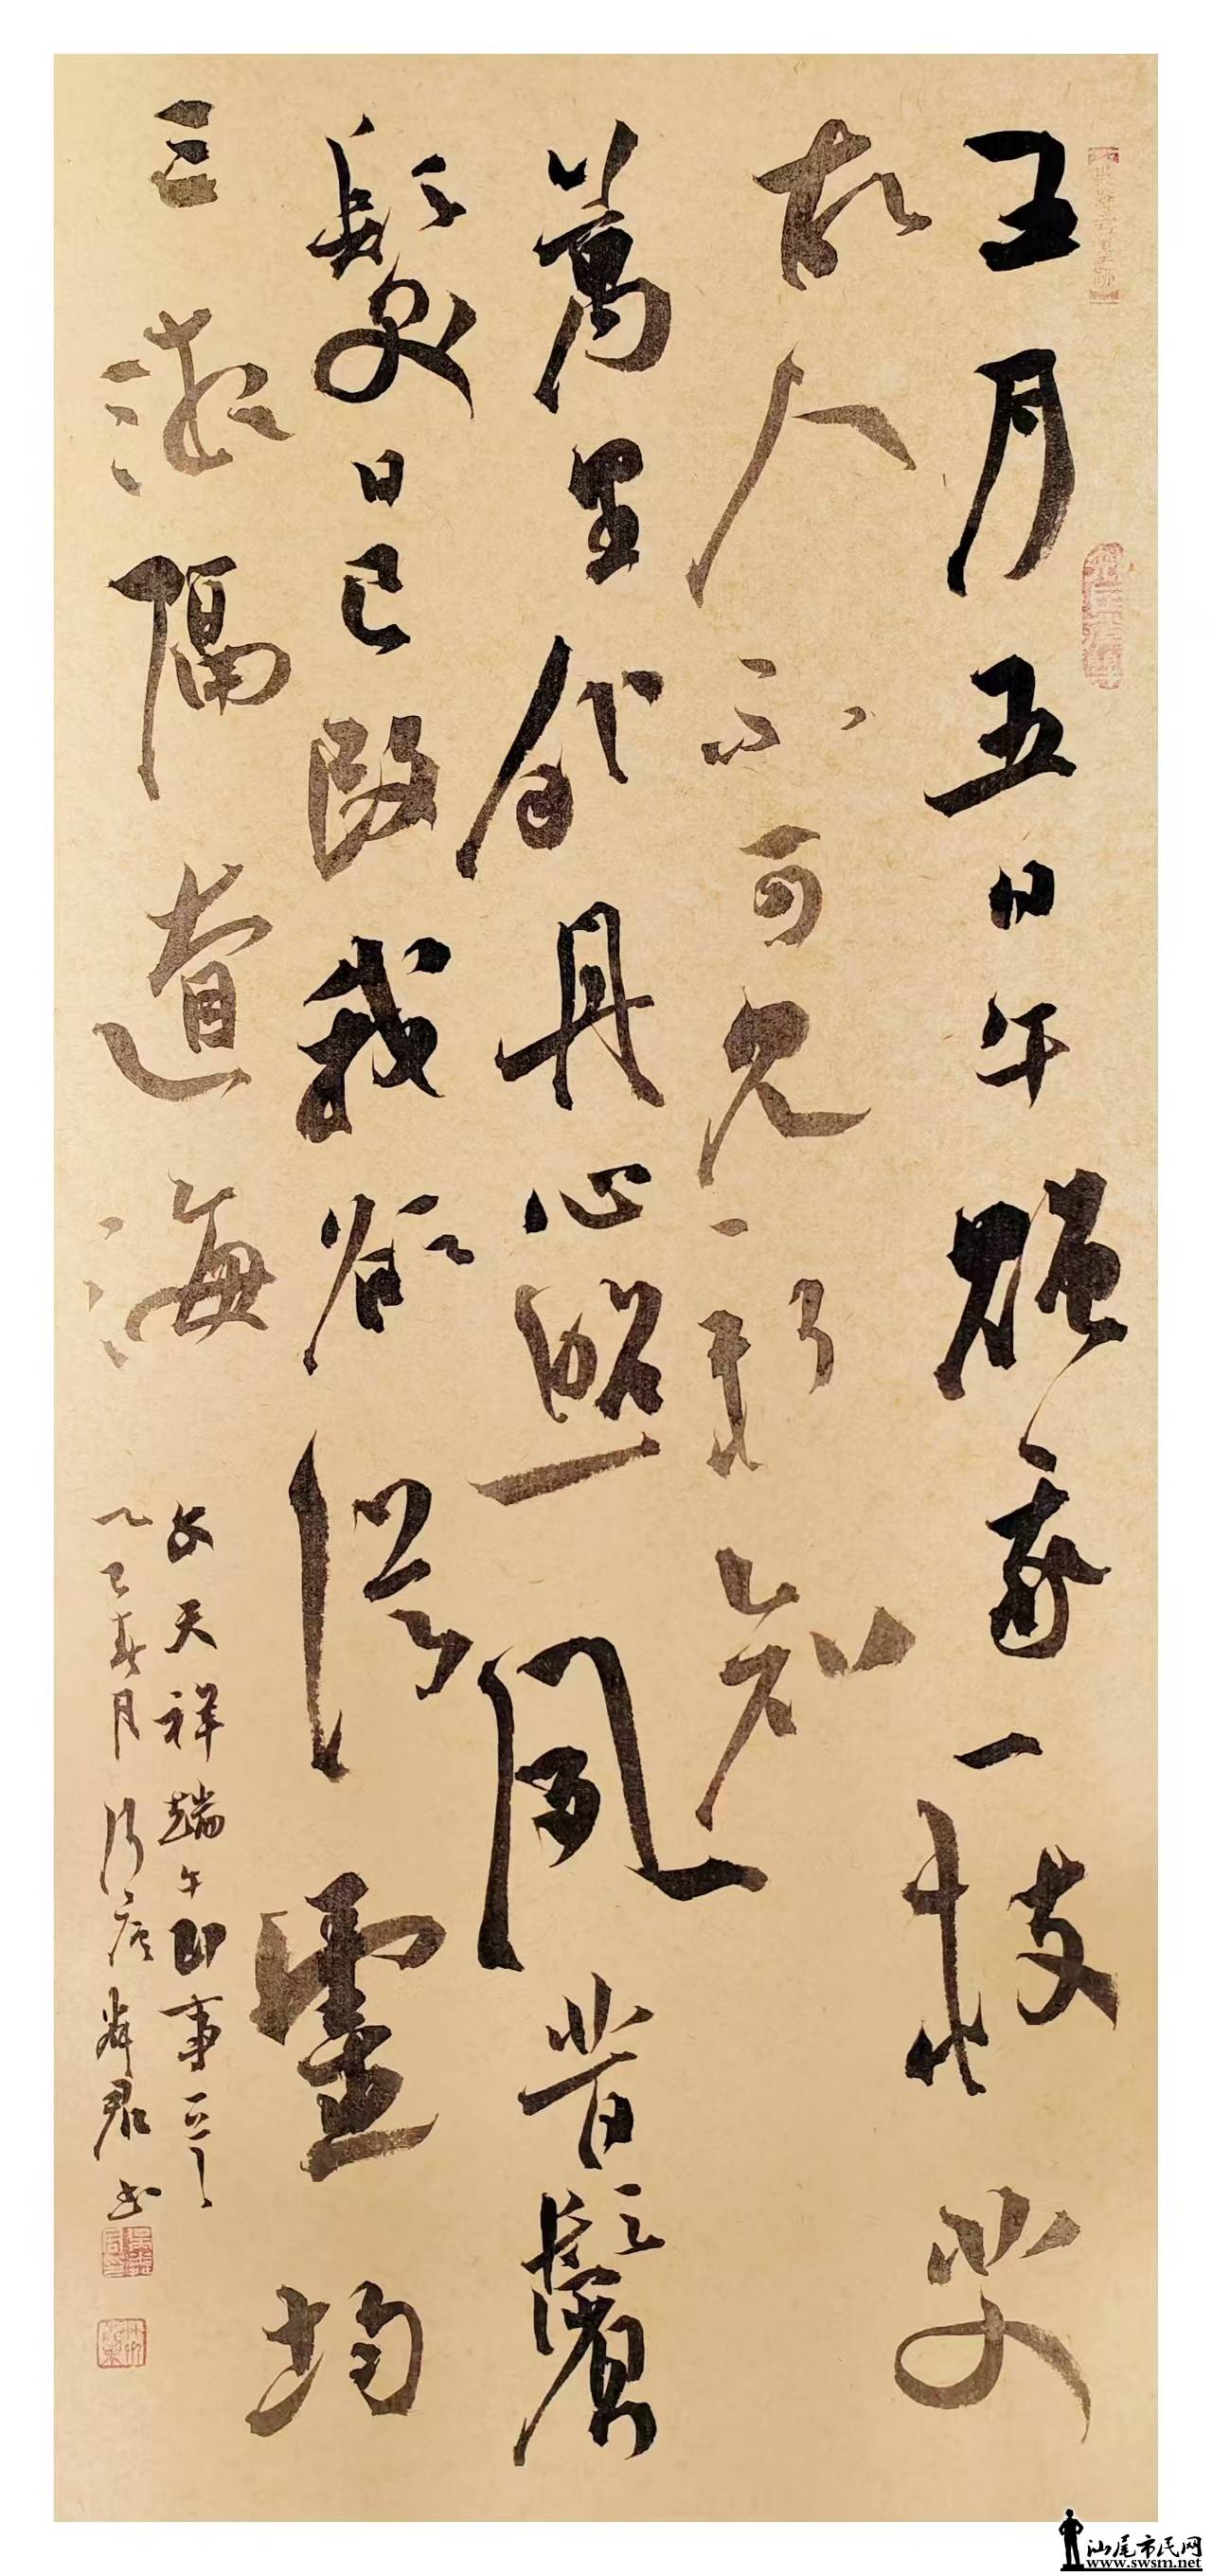 五月五日午贈我一枝艾
故人不可見新知
萬里外丹心照夙昔鬢
髮日已改我欲從靈均
三湘隔遼海
文天祥端午即事一首
乙巳春月君书
汕尾市民网
www.swsm.net